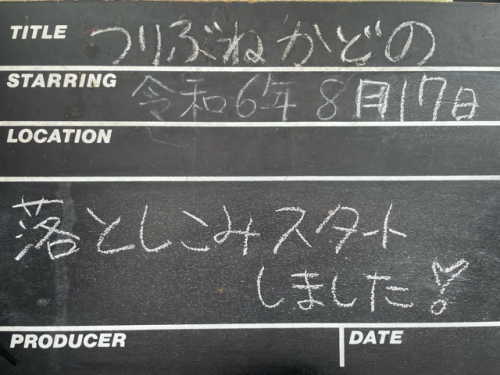 TITLE つりぶねかどの
STARRING 令和6年8月17日
LOCATION
落としこみスタート
しました!
PRODUCER DATE